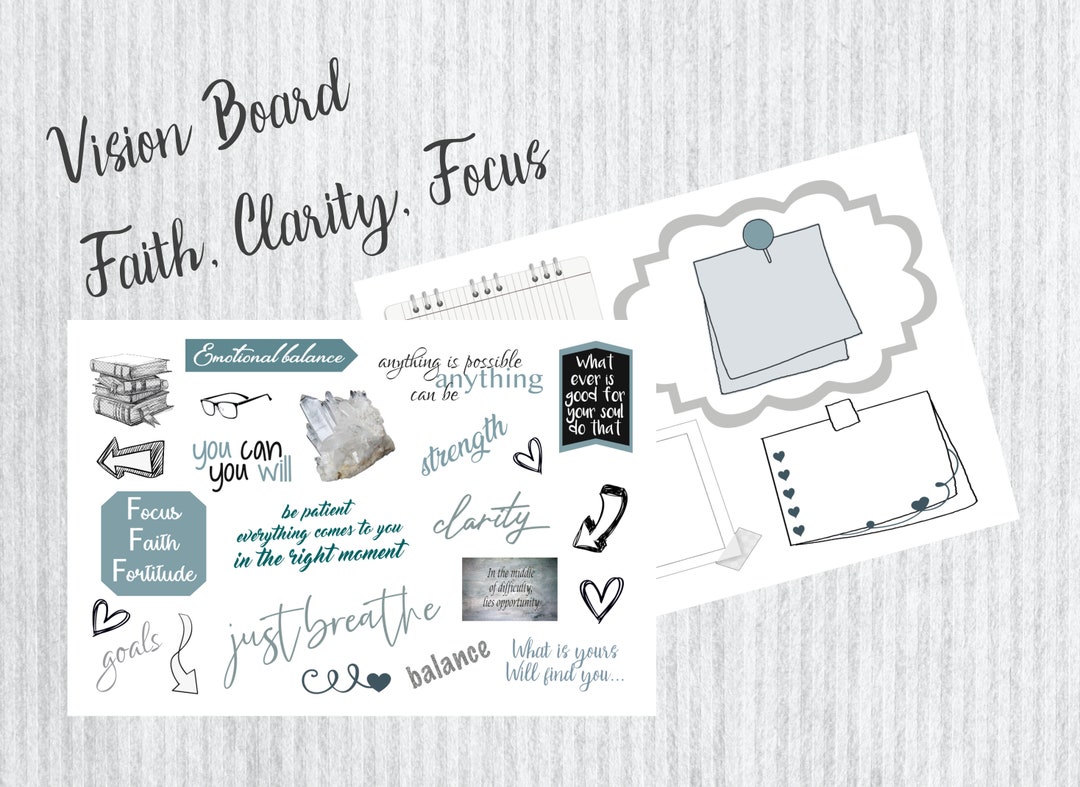 Vision Board
Faith, Clarity, Focus
Emotional balance
anything is possible
anything
can be
What
ever is
good for
your soul
do that
you can
you will
strength
Focus
Faith
Fortitude
be patient
everything comes to you
in the right moment
clarity
In the middle
of difficulty,
lies opportunity
goals
just breathe
balance
What is yours
Will find you...